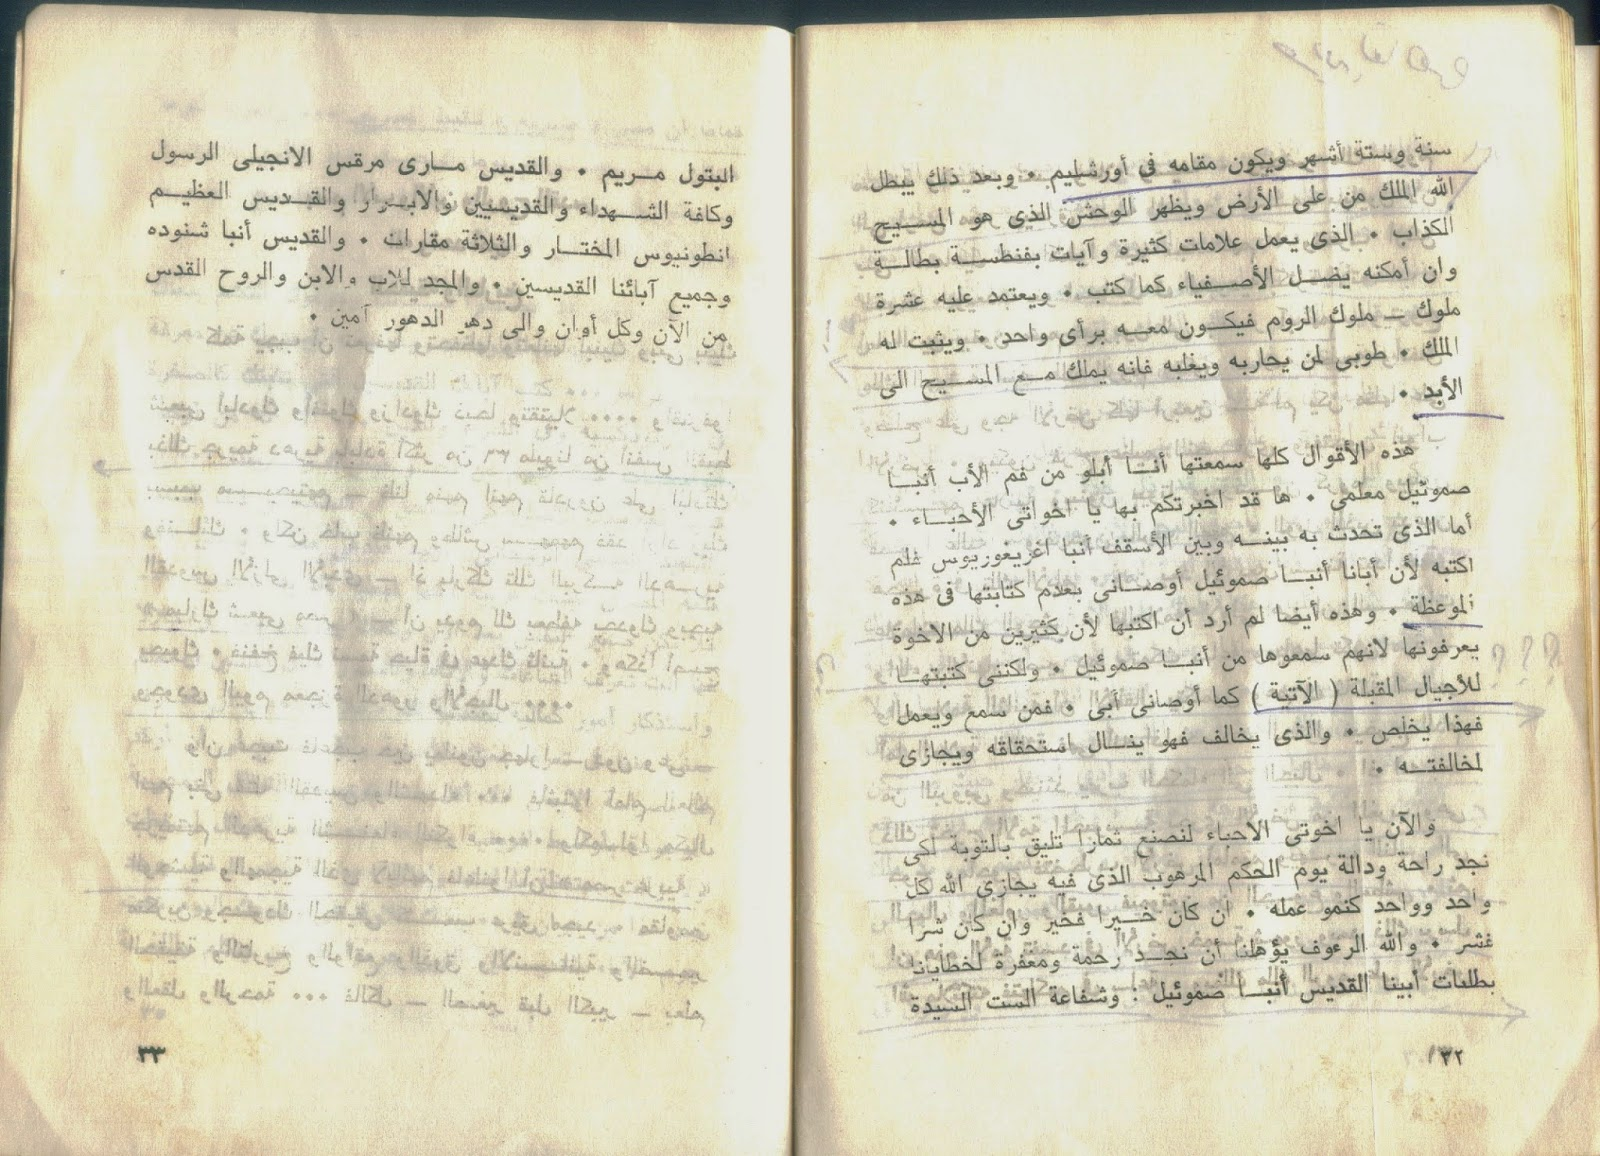 سنة وستة أشهر ويكون مقامه في أورشليم . وبعد ذلك يبطل
الله الملك من على الأرض ويظهر الوحش الذى هو المسيح
الكذاب . الذى يعمل علامات كثيرة وآيات بفنطسية بطالة
وان أمكنه يضل الأصفياء كما كتب . ويعتمد عليه عشرة
ملوك — ملوك الروم فيكون معه برأى واحد . ويثبت له
الملك . طوبى لمن يحاربه ويغلبه فانه يملك مع المسيح الى
الأبد .
هذه الأقوال كلها سمعتها أنا أبلو من فم الأب أنبا
صموئيل معلمى . ها قد اخبرتكم بها يا اخواتى الأحباء .
أما الذى تحدث به بينه وبين الأسقف أنبا اغريغوريوس فلم
اكتبه لأن أبانا أنبا صموئيل أوصانى بعدم كتابتها فى هذه
الموعظة . وهذه أيضا لم أرد أن اكتبها لأن كثيرين من الاخوة
يعرفونها لانهم سمعوها من أنبا صموئيل . ولكننى كتبتها
للأجيال المقبلة ( الآتية ) كما أوصانى أبى . فمن سمع ويعمل
فهذا يخلص . والذى يخالف فهو ينال استحقاقه ويجازى
لمخالفته .
والآن يا اخوتى الاحباء لنصنع ثمارا تليق بالتوبة لكى
نجد راحة ودالة يوم الحكم المرهوب الذى فيه يجازى الله كل
واحد وواحد كنمو عمله . ان كان خيرا فخير وان كان شرا
فشر . والله الرءوف يؤهلنا أن نجد رحمة ومغفرة لخطايانا
بطلبات أبينا القديس أنبا صموئيل : وشفاعة الست السيدة
٣٢
البتول مريم . والقديس مارى مرقس الانجيلى الرسول
وكافة الشهداء والقديسيين والابرار والقديس العظيم
انطونيوس المختار والثلاثة مقارات . والقديس أنبا شنوده
وجميع آبائنا القديسين . والمجد للاب والابن والروح القدس
من الآن وكل أوان والى دهر الدهور آمين .
٣٣